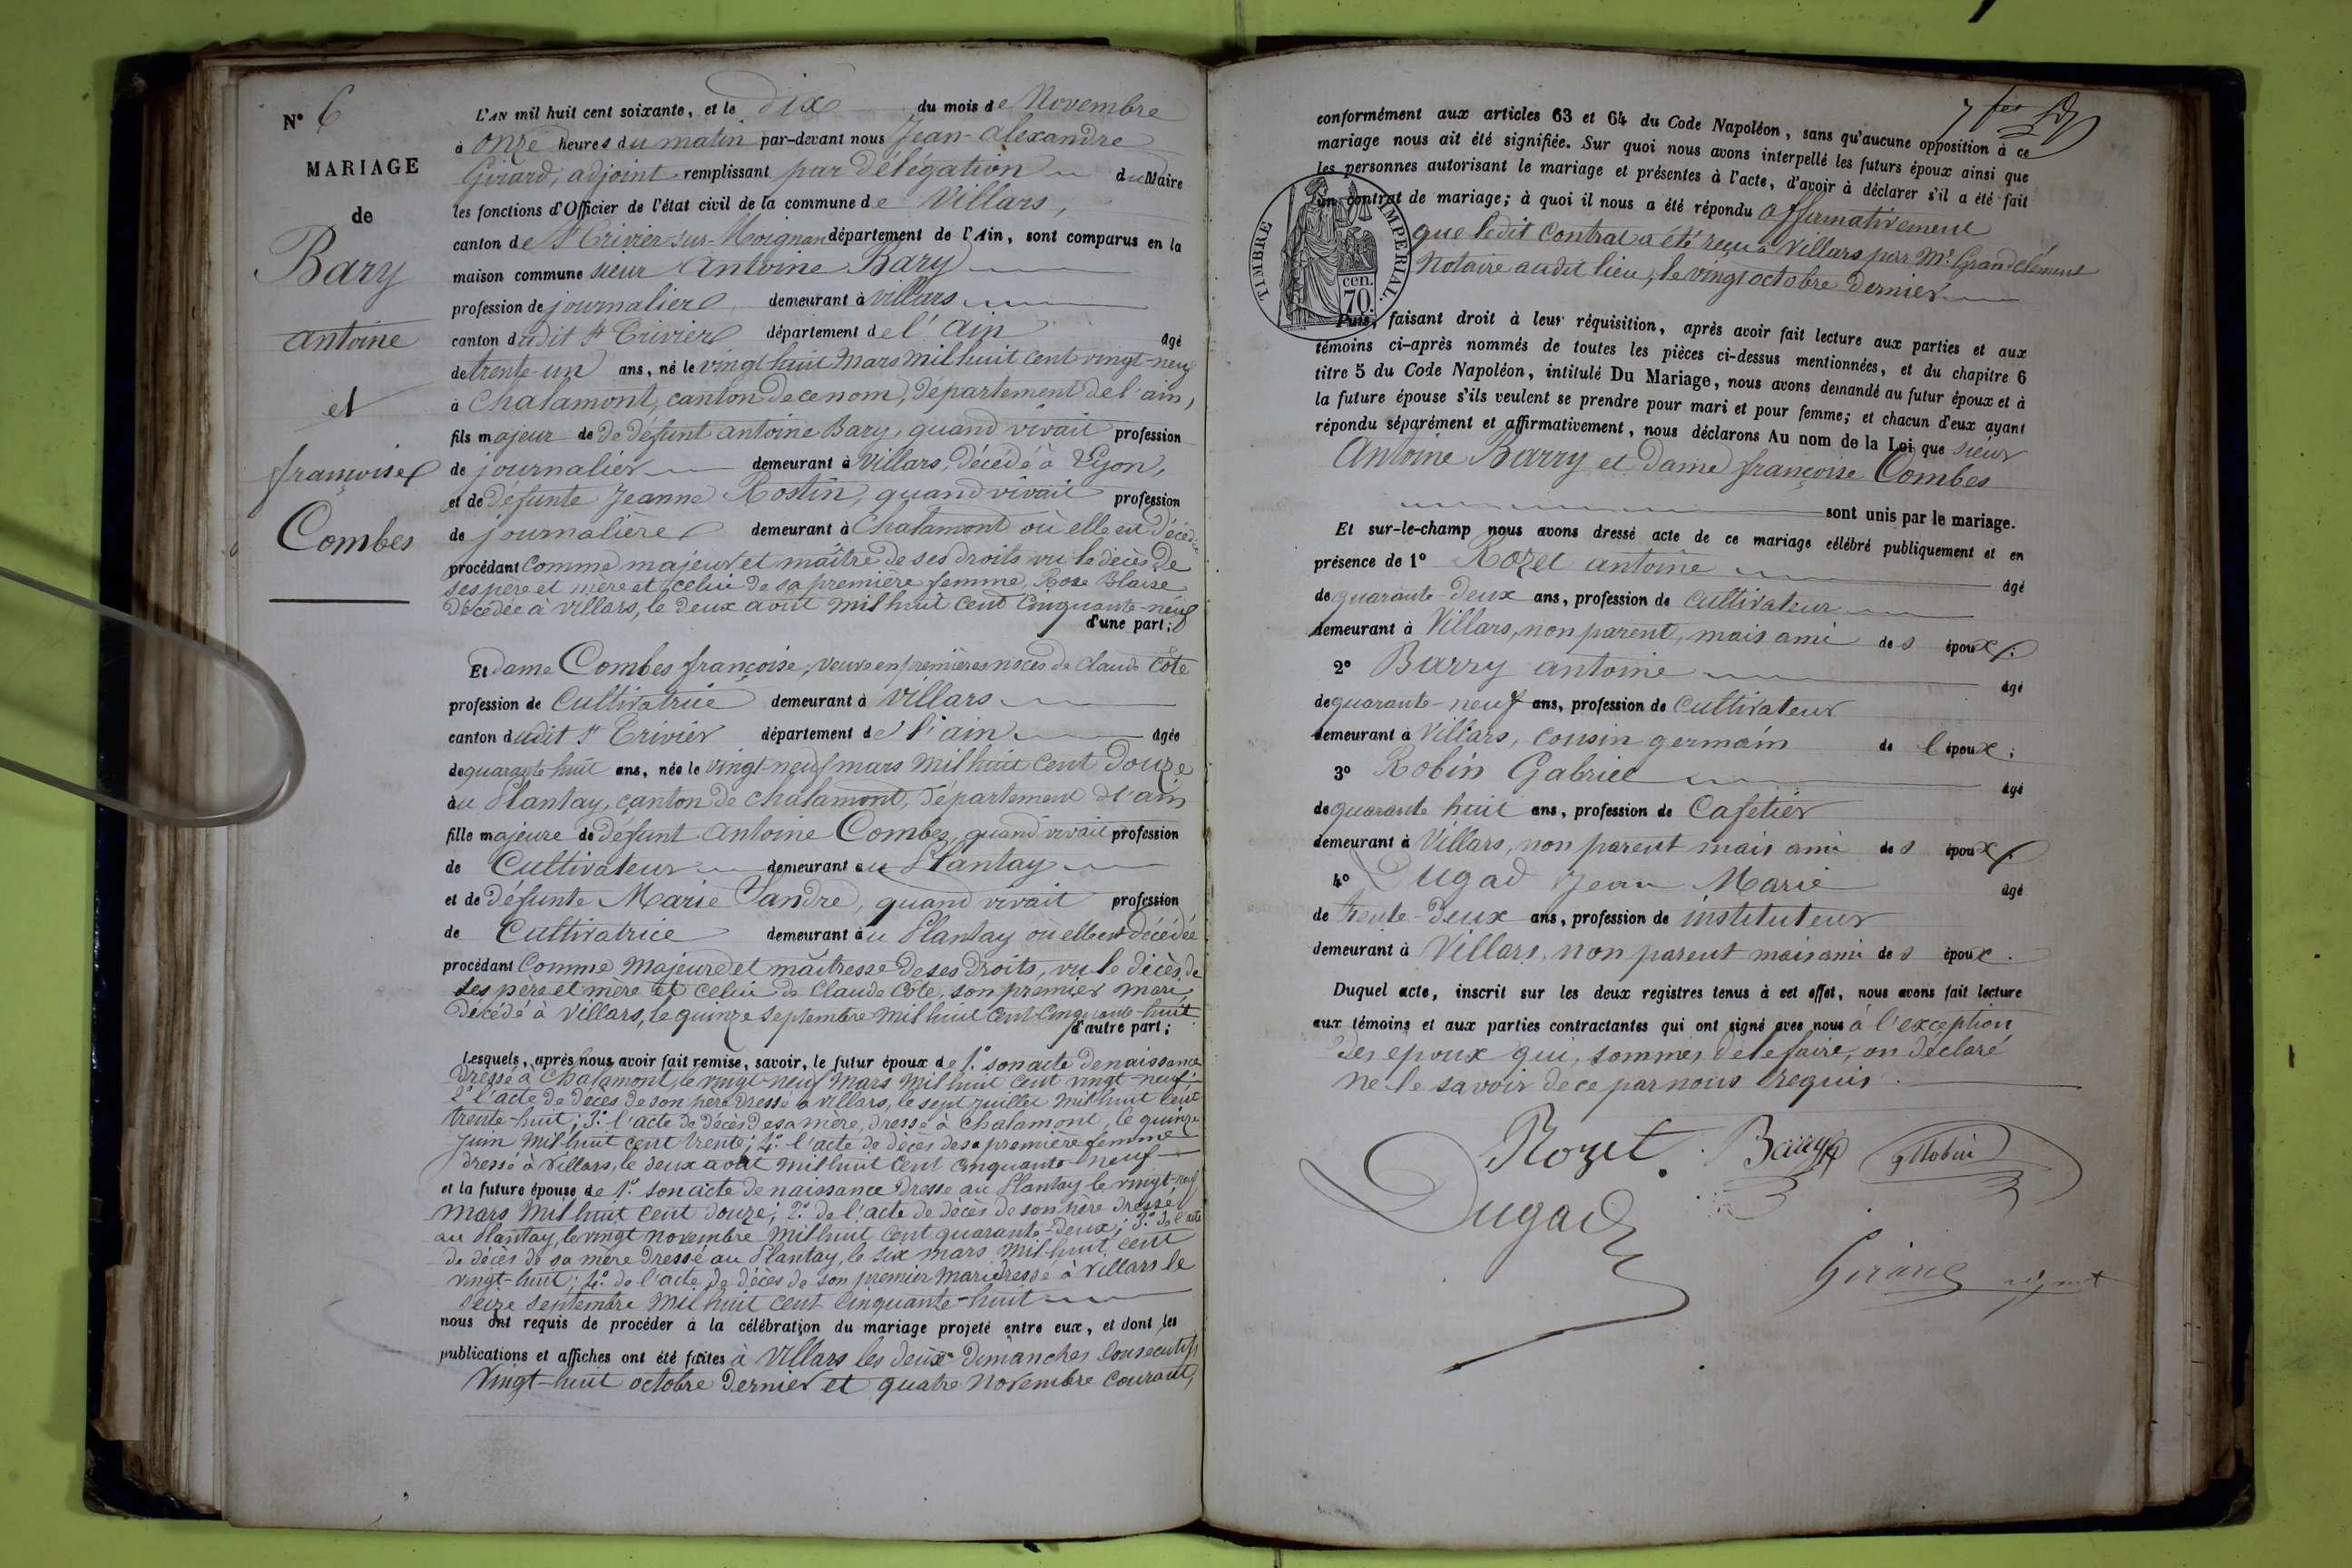 N° 6
MARIAGE
de
Bary
antoine
et
françoise
Combes
L'AN mil huit cent soixante, et le dix du mois de Novembre
à onze heures du matin par-devant nous Jean-alexandre
Girard, adjoint remplissant par délégation du Maire
les fonctions d'Officier de l'état civil de la commune de Villars,
canton de St Trivier-sur-Moignan département de l'Ain, sont comparus en la
maison commune sieur Antoine Bary
profession de journalier demeurant à villars
canton dudit St Trivier département de l'ain âgé
de trente-un ans, né le vingt huit mars mil huit cent vingt-neuf
à Chalamont, canton de ce nom, département de l'ain,
fils majeur de de défunt antoine Bary, quand vivait profession
de journalier demeurant à Villars, décédé à Lyon,
et de défunte Jeanne Rostin, quand vivait profession
de journalière demeurant à Chalamont où elle est décédée
procédant comme majeur et maître de ses droits vu le décès de
ses père et mère et celui de sa première femme Rose Blaise
décédée à villars, le deux aout mil huit cent cinquante-neuf
d'une part;
Et dame Combes françoise, veuve en premières noces de Claude Côte
profession de Cultivatrice demeurant à villars
canton dudit St Trivier département de l'ain âgée
de quarante-huit ans, née le vingt-neuf mars mil huit cent douze
au Plantay, canton de chalamont, département de l'ain
fille majeure de défunt antoine Combes, quand vivait profession
de Cultivateur demeurant au Plantay
et de défunte Marie Sandre, quand vivait profession
de Cultivatrice demeurant au Plantay où elle est décédée
procédant Comme Majeure et maîtresse de ses droits, vu le décès de
ses père et mère et celui de Claude Côte, son premier mari,
décédé à Villars, le quinze septembre mil huit cent cinquante-huit
d'autre part;
Lesquels, après nous avoir fait remise, savoir, le futur époux de 1° son acte de naissance
dressé à Chalamont, le vingt-neuf mars mil huit cent vingt-neuf;
2° l'acte de décès de son père dressé à villars, le sept juillet mil huit cent
trente-huit; 3° l'acte de décès de sa mère, dressé à Chalamont, le quinze
juin mil huit cent trente; 4° l'acte de décès de sa première femme
dressé à Villars, le deux aout mil huit cent cinquante-neuf
et la future épouse de 1° son acte de naissance dressé au Plantay le vingt-neuf
mars mil huit cent douze; 2° de l'acte de décès de son père dressé
au Plantay, le vingt novembre mil huit cent quarante-deux; 3° de l'acte
de décès de sa mère dressé au Plantay, le six mars mil huit cent
vingt-huit; 4° de l'acte de décès de son premier mari dressé à Villars le
seize septembre mil huit cent cinquante-huit
nous ont requis de procéder à la célébration du mariage projeté entre eux, et dont les
publications et affiches ont été faites à Villars les deux dimanches consecutifs
Vingt-huit octobre dernier et quatre novembre courant,
conformément aux articles 63 et 64 du Code Napoléon, sans qu'aucune opposition à ce
mariage nous ait été signifiée. Sur quoi nous avons interpellé les futurs époux ainsi que
les personnes autorisant le mariage et présentes à l'acte, d'avoir à déclarer s'il a été fait
un contrat de mariage; à quoi il nous a été répondu affirmativement
que ledit contrat a été reçu à Villars par Me Grandclément
Notaire audit lieu, le vingt octobre dernier
TIMBRE IMPÉRIAL.
cen.
70.
Puis, faisant droit à leur réquisition, après avoir fait lecture aux parties et aux
témoins ci-après nommés de toutes les pièces ci-dessus mentionnées, et du chapitre 6
titre 5 du Code Napoléon, intitulé Du Mariage, nous avons demandé au futur époux et à
la future épouse s'ils veulent se prendre pour mari et pour femme; et chacun d'eux ayant
répondu séparément et affirmativement, nous déclarons Au nom de la Loi que sieur
Antoine Barry et dame françoise Combes
sont unis par le mariage.
Et sur-le-champ nous avons dressé acte de ce mariage célébré publiquement et en
présence de 1° Rozet antoine âgé
de quarante-deux ans, profession de cultivateur
demeurant à Villars, non parent, mais ami des époux;
2° Barry antoine âgé
de quarante-neuf ans, profession de cultivateur
demeurant à Villars, cousin germain de l'époux;
3° Robin Gabriel âgé
de quarante huit ans, profession de Cafetier
demeurant à Villars, non parent mais ami des époux;
4° Dugad Jean Marie âgé
de trente-deux ans, profession de instituteur
demeurant à Villars, non parent mais ami des époux.
Duquel acte, inscrit sur les deux registres tenus à cet effet, nous avons fait lecture
aux témoins et aux parties contractantes qui ont signé avec nous à l'exception
des époux qui, sommés de le faire, on déclaré
ne le savoir de ce par nous requis.
Rozet. Barry gRobin
Dugad
Girard adjoint